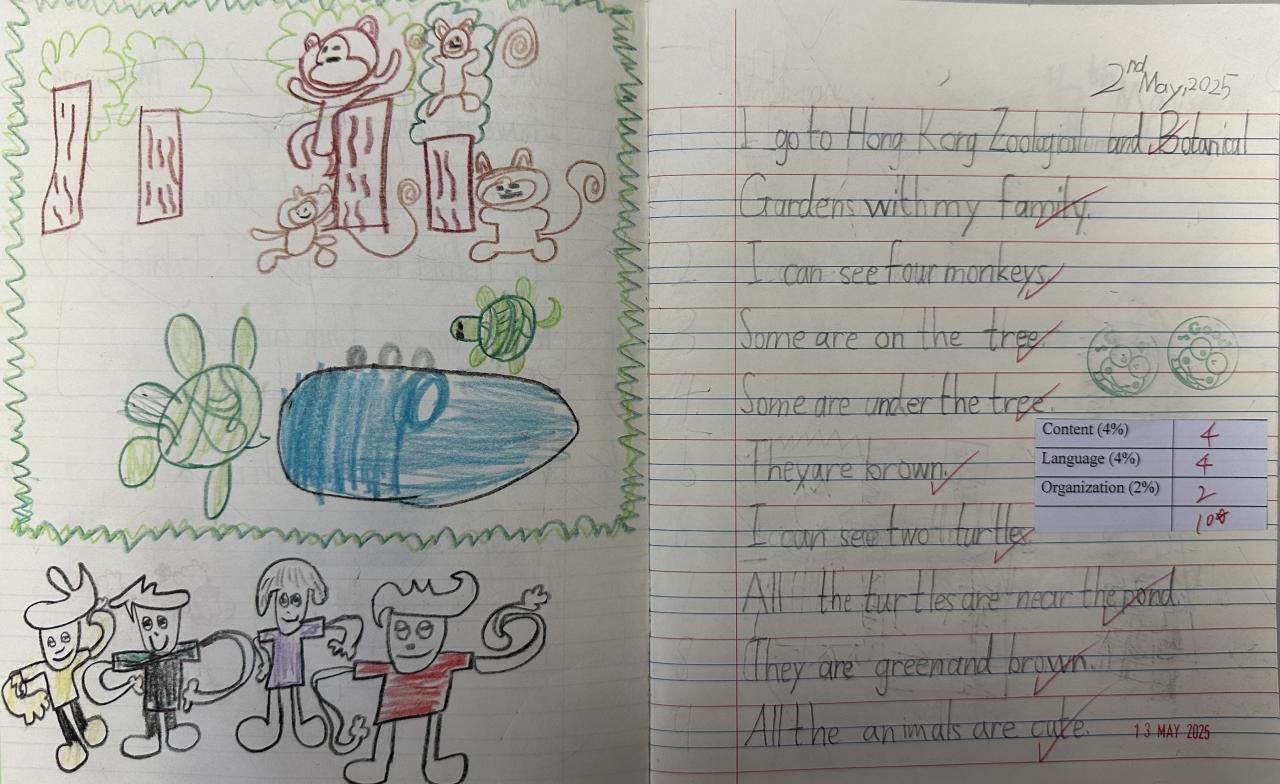 2nd May, 2025
I go to Hong Korg Zoological and Botanical
Gardens with my family.
I can see four monkeys
Some are on the tree
Some are under the tree.
They are brown.
I can see two turtles
All the turtles are near the pond.
They are green and brown.
All the animals are cute.
Content (4%) 4
Language (4%) 4
Organization (2%) 2
10
13 MAY 2025